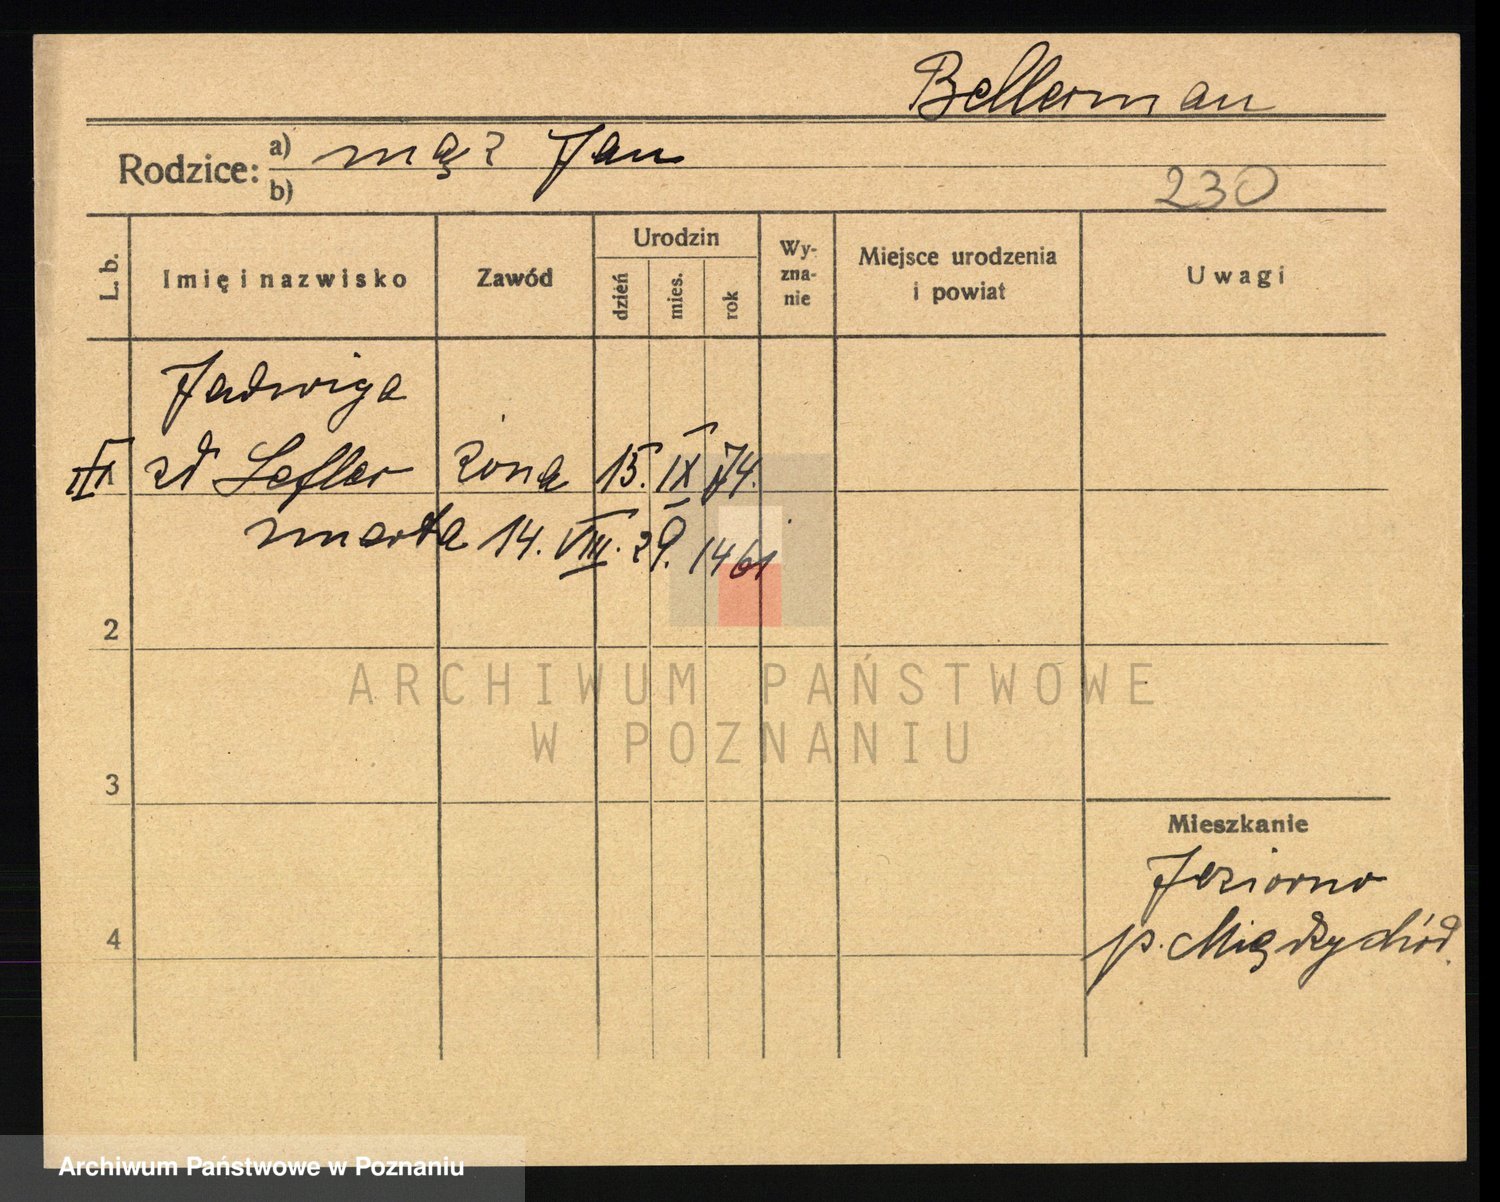 Bellerman
Rodzice: a) mąż Jan
b)
230
L. b. Imię i nazwisko Zawód Urodzin dzień mies. rok Wy-zna-nie Miejsce urodzenia i powiat Uwagi
Jadwiga
zd Lefler żona 15. IX 74.
zmarła 14. VIII. 29. 1461
2
3
4
Mieszkanie
Jeziorno
p. Międzychód.
ARCHIWUM PAŃSTWOWE
W POZNANIU
Archiwum Państwowe w Poznaniu